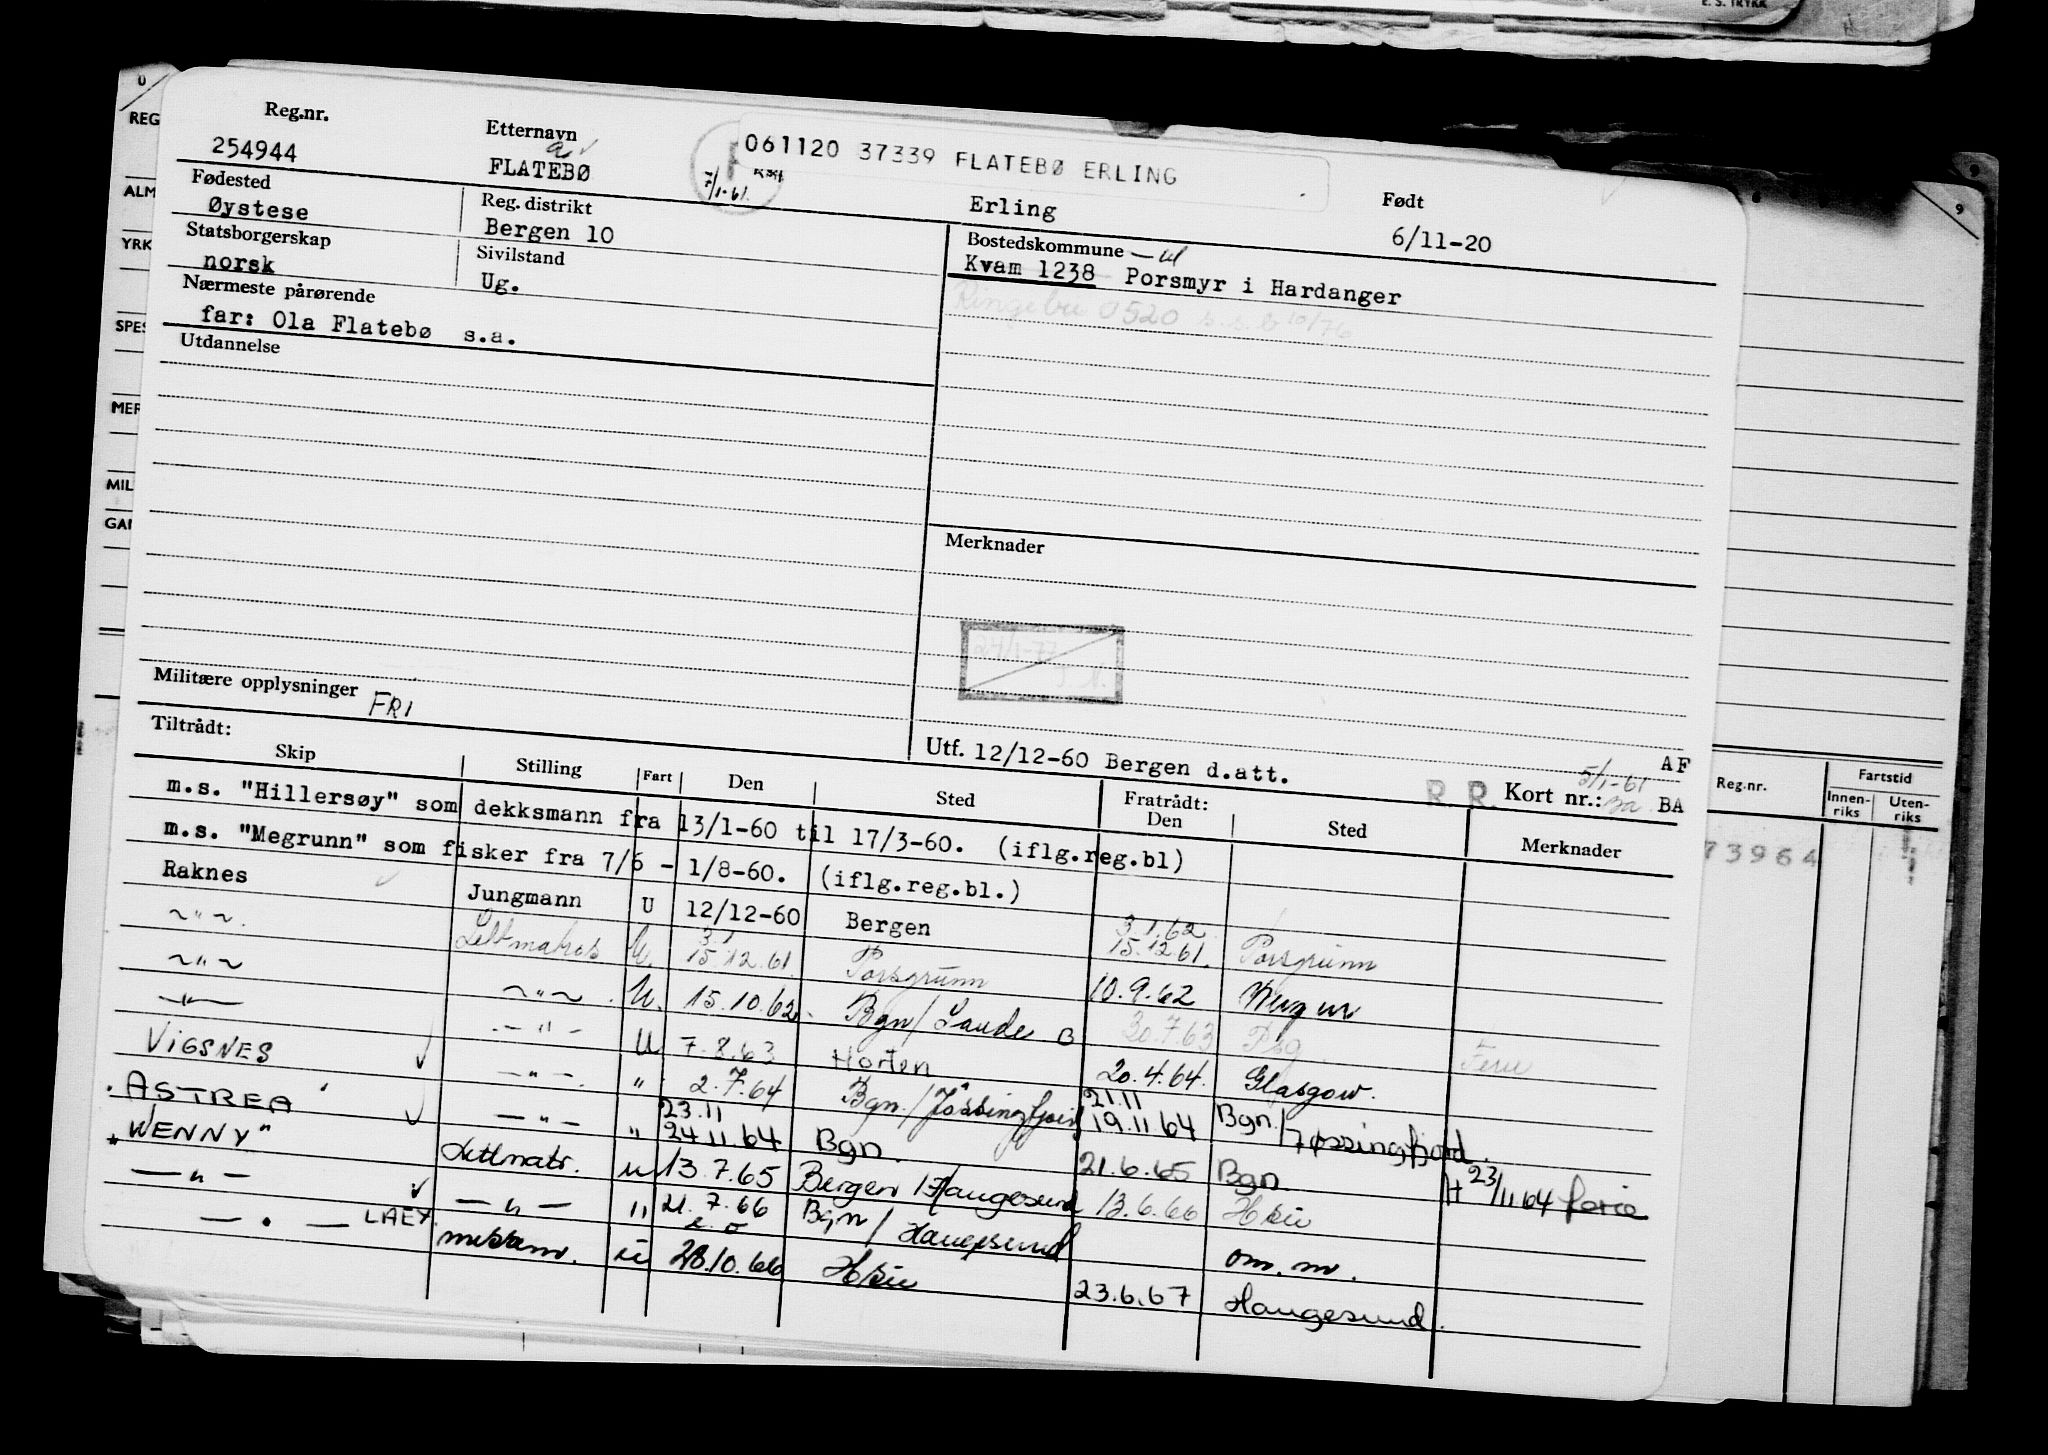 E. S. TRYKK
Reg.nr. Etternavn
254944 FLATEBØ 061120 37339 FLATEBØ ERLING
7/1-61.
Erling Født
6/11-20
Fødested Reg. distrikt
Øystese Bergen 10
Bostedskommune
Kvam 1238 Porsmyr i Hardanger
Ringebu 0520 s.s.b 10/76
Statsborgerskap Sivilstand
norsk Ug.
Nærmeste pårørende
far: Ola Flatebø s.a.
Utdannelse
Merknader
24/1-77
Militære opplysninger FRI
Utf. 12/12-60 Bergen d.att. AF
5/1-61
R. R. Kort nr.: BA
Tiltrådt: Fratrådt:
Skip Stilling Fart Den Sted Den Sted Merknader
m.s. "Hillersøy" som dekksmann fra 13/1-60 til 17/3-60. (iflg.reg.bl)
m.s. "Megrunn" som fisker fra 7/6 - 1/8-60. (iflg.reg.bl.)
Raknes Jungmann U 12/12-60 Bergen 3.1.62 15.12.61. Porsgrunn
~"~. Lettmatros U. 3.1 15.12.61. Porsgrunn 10.9.62
~"~ ~"~. U. 15.10.62. Bgn/ B 30.7.63 Psg. Ferie
—"— .-"- U 7.8.63 Horten 20.4.64. Glasgow.
VIGSNES -"-. " 2.7.64 Bgn./Jøssingfjord 21.11 19.11.64 Bgn./Jøssingfjord.
"ASTREA" -"- " 23.11 24.11.64 Bgn. 21.6.65 Bgn H 23/11.64 ferie
"WENNY" Lettmatr. u 13.7.65 Bergen/Haugesund 13.6.66 Hsu
—"— —"— " 21.7.66 Bgn/Haugesund om.m.
—"— LAEX u 28.10.66 Hsu 23.6.67 Haugesund.
REG
ALM
YRK
SPES
MER
MIL
GAN
9
Reg.nr. Fartstid
Innen-riks Uten-riks
73964